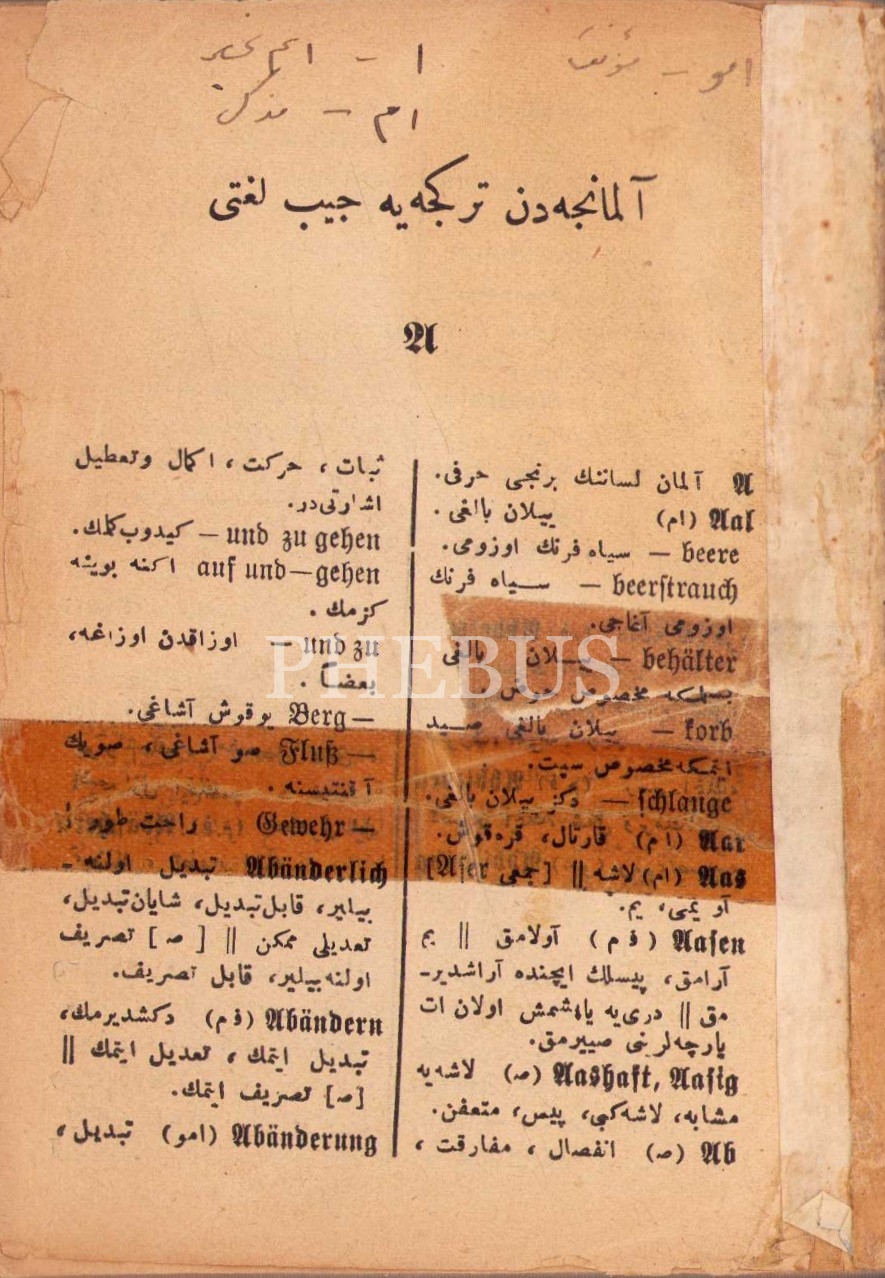 ا - اسم
امو - مؤنث
ام - مذكر
آلمانجه‌دن تركجه‌یه جیب لغتی
A
A آلمان لساننك برنجی حرفی.
Aal (ام) ییلان بالغی.
beere — سیاه فرنك اوزومی.
beerstrauch — سیاه فرنك
اوزومی آغاجی.
behälter — ییلان بالغی
بسلمكه مخصوص حوض.
korb — ییلان بالغی صید
ایتمكه مخصوص سپت.
schlange — دكز ییلان بالغی.
Aar (ام) قارتال، قره‌قوش.
Aas (ام) لاشه || [جمعی Aser]
آو یمی، یم.
Aasen (فم) آولامق || یم
آرامق، پیسلك ایچنده آراشدیر-
مق || دری‌یه یاپشمش اولان ات
پارچه‌لرینی صییرمق.
Aashaft, Aasig (صه) لاشه‌یه
مشابه، لاشه‌كبی، پیس، متعفن.
Ab (صه) انفصال، مفارقت،
ثبات، حركت، اكمال وتعطیل
اشارتی‌در.
und zu gehen — كیدوب كلمك.
auf und—gehen اكنه بوینه
كزمك.
und zu — اوزاقدن اوزاغه،
بعضاً.
Berg— یوقوش آشاغی.
Fluß— صو آشاغی، صویك
آقنتیسنه.
Gewehr— راحت طور!
Abänderlich تبدیل اولنه-
بیلیر، قابل تبدیل، شایان تبدیل،
تعدیلی ممكن || [صه] تصریف
اولنه‌بیلیر، قابل تصریف.
Abändern (فم) دكشدیرمك،
تبدیل ایتمك، تعدیل ایتمك ||
[صه] تصریف ایتمك.
Abänderung (امو) تبدیل،
PHEBUS